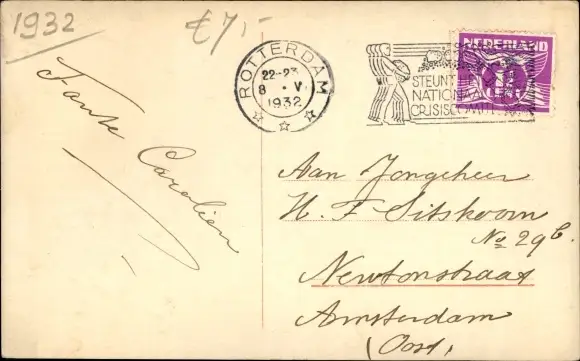 1932
€7,-
ROTTERDAM
22-23
8 · V
1932
STEUNT HET
NATIONAAL
CRISISCOMITÉ
NEDERLAND
Tante
Carolien
Aan Jongeheer
H. F. Sitskoorn
No 29 b.
Newtonstraat
Amsterdam
(Oost)